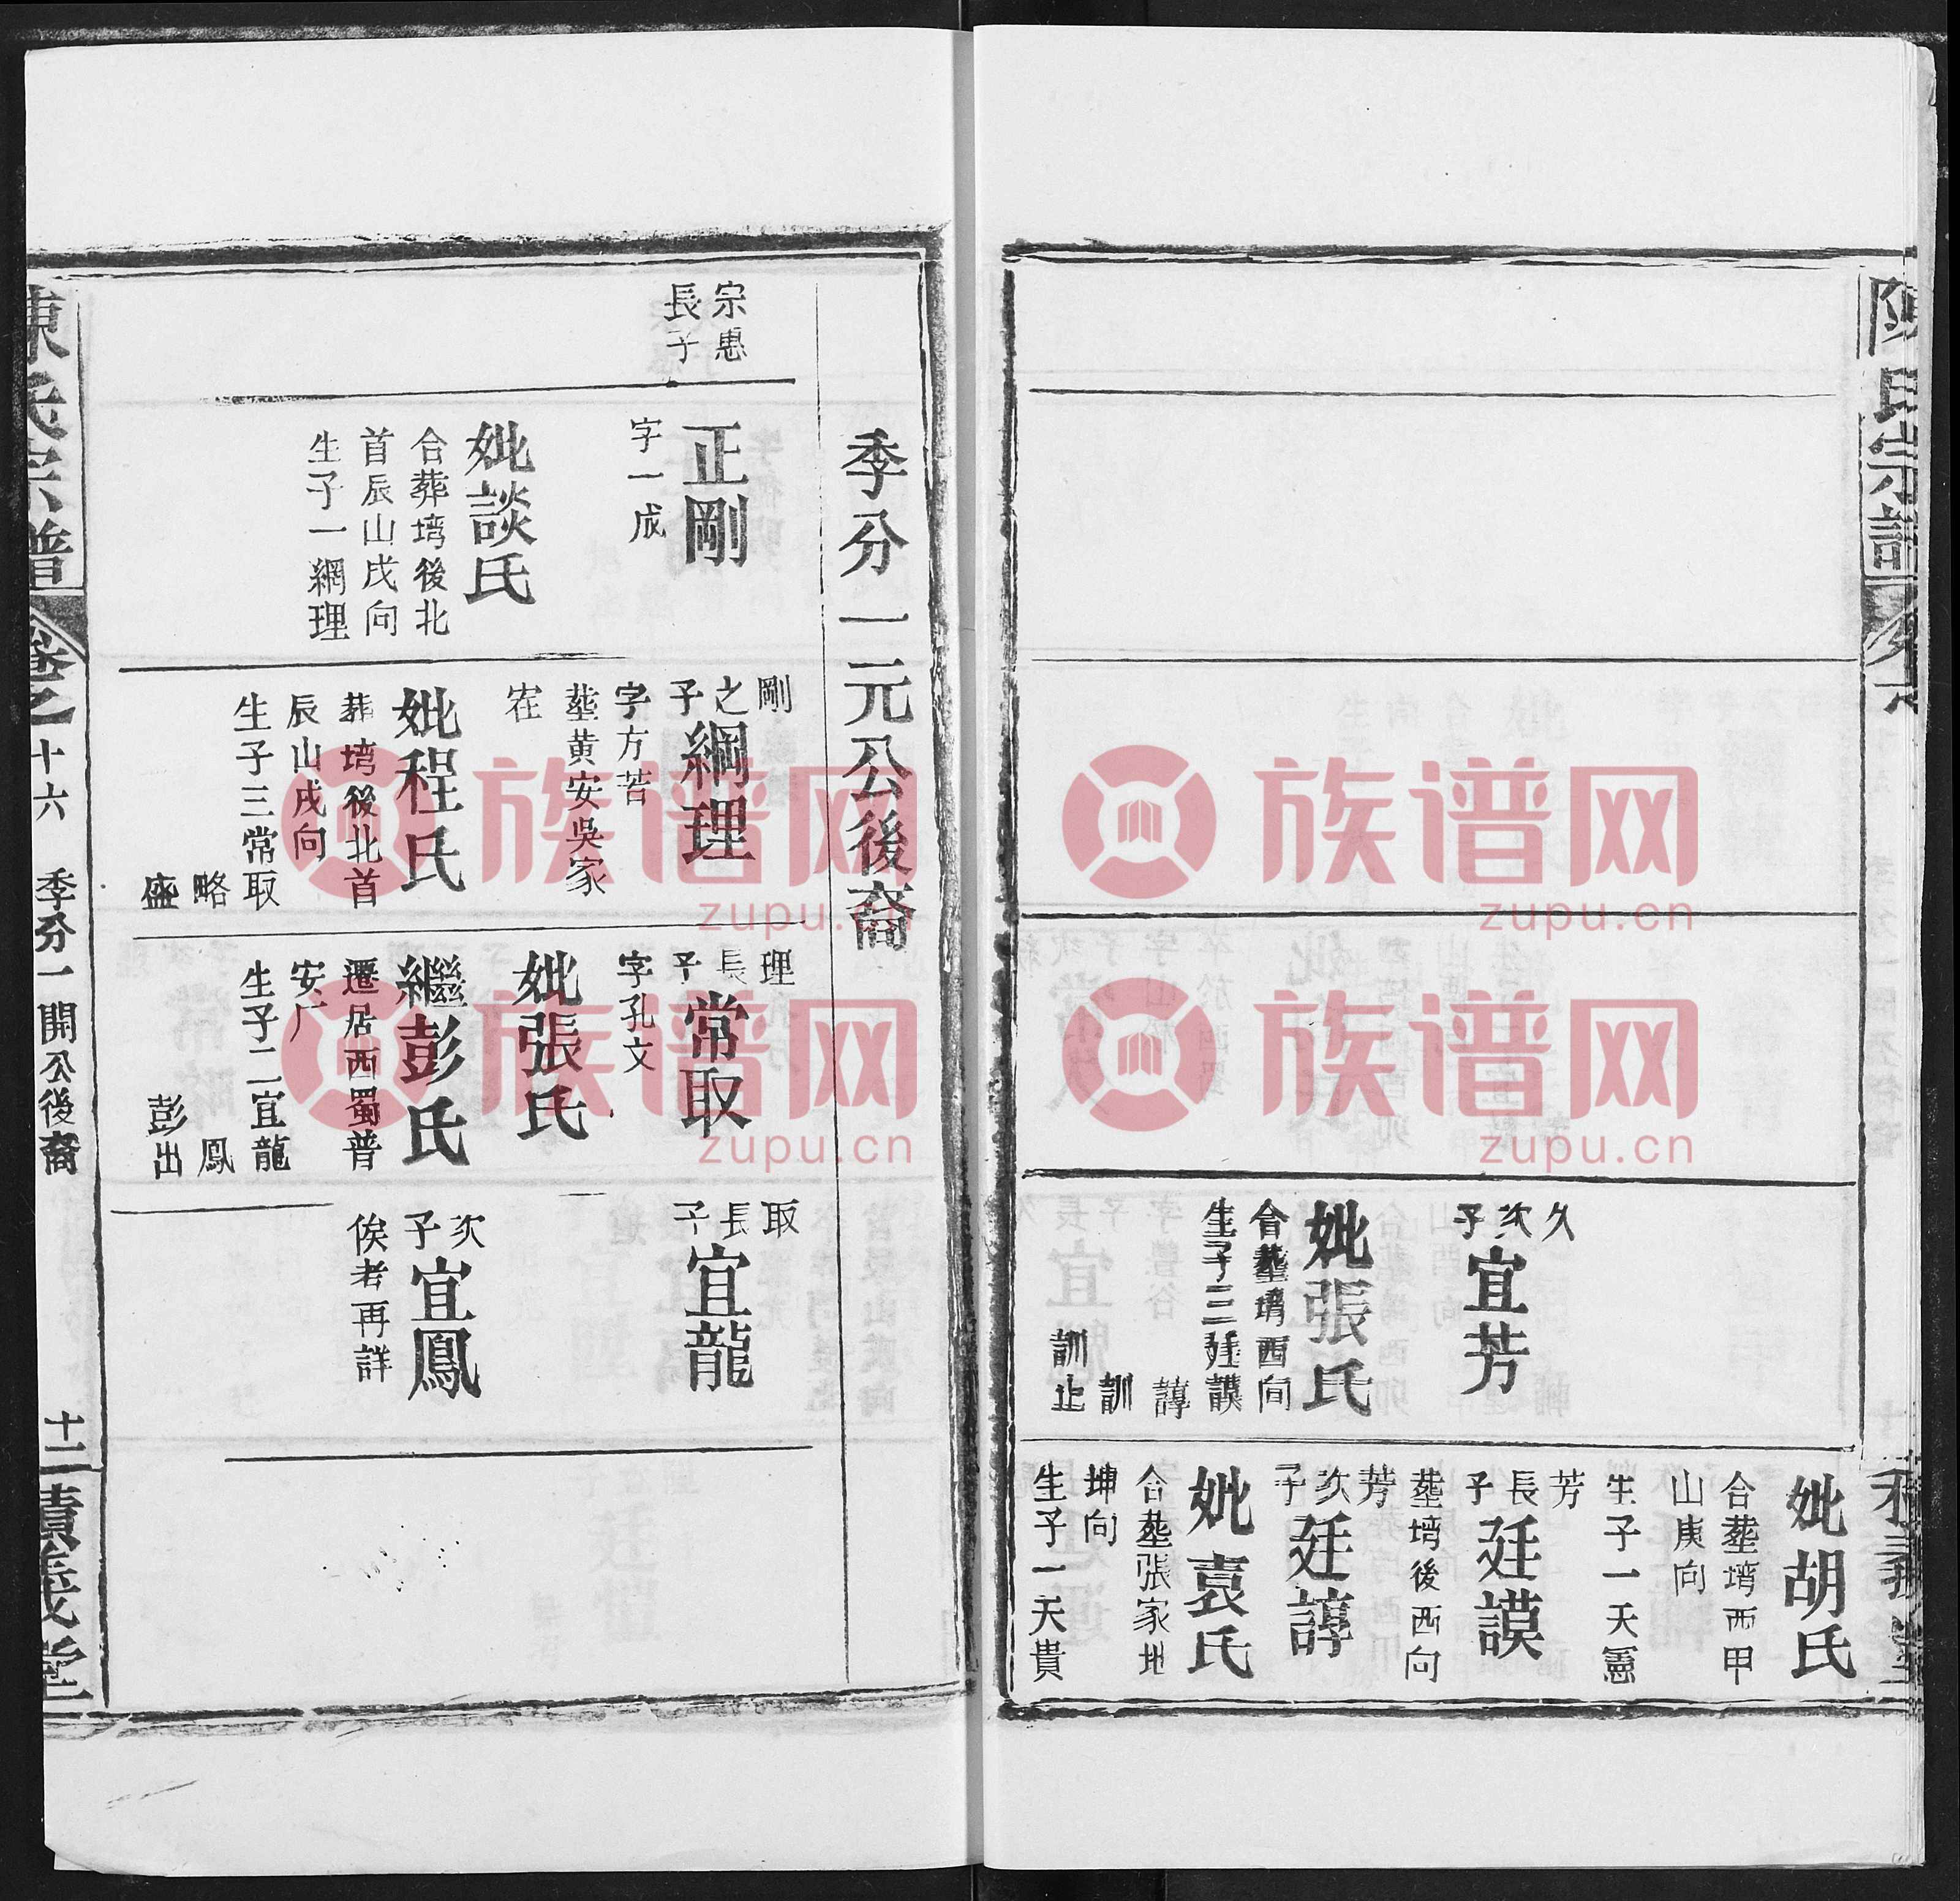 陳氏宗譜
久次子
宜芳
妣張氏
合墓塆西向
生子三廷謨
諄
訓
訓止
妣胡氏
合墓塆西甲
山庚向
生子一天憲
芳長子
廷謨
墓塆後西向
芳次子
廷諄
妣袁氏
合墓張家地
坤向
生子一天貴
季分一元公後裔
宗惠
長子
正剛
字一成
妣談氏
合葬塆後北
首辰山戌向
生子一綱理
剛之子
綱理
字方若
墓黄安吳家
妣程氏
葬塆後北首
辰山戌向
生子三常取
略
盛
理長子
常取
字孔文
妣張氏
繼彭氏
遷居西蜀普
安厂
生子二宜龍
鳳
彭出
取長子
宜龍
次子
宜鳳
俟考再詳
陳氏宗譜
卷之十六
季分一開公後裔
十二
續義堂
族谱网
zupu.cn
族谱网
zupu.cn
族谱网
zupu.cn
族谱网
zupu.cn